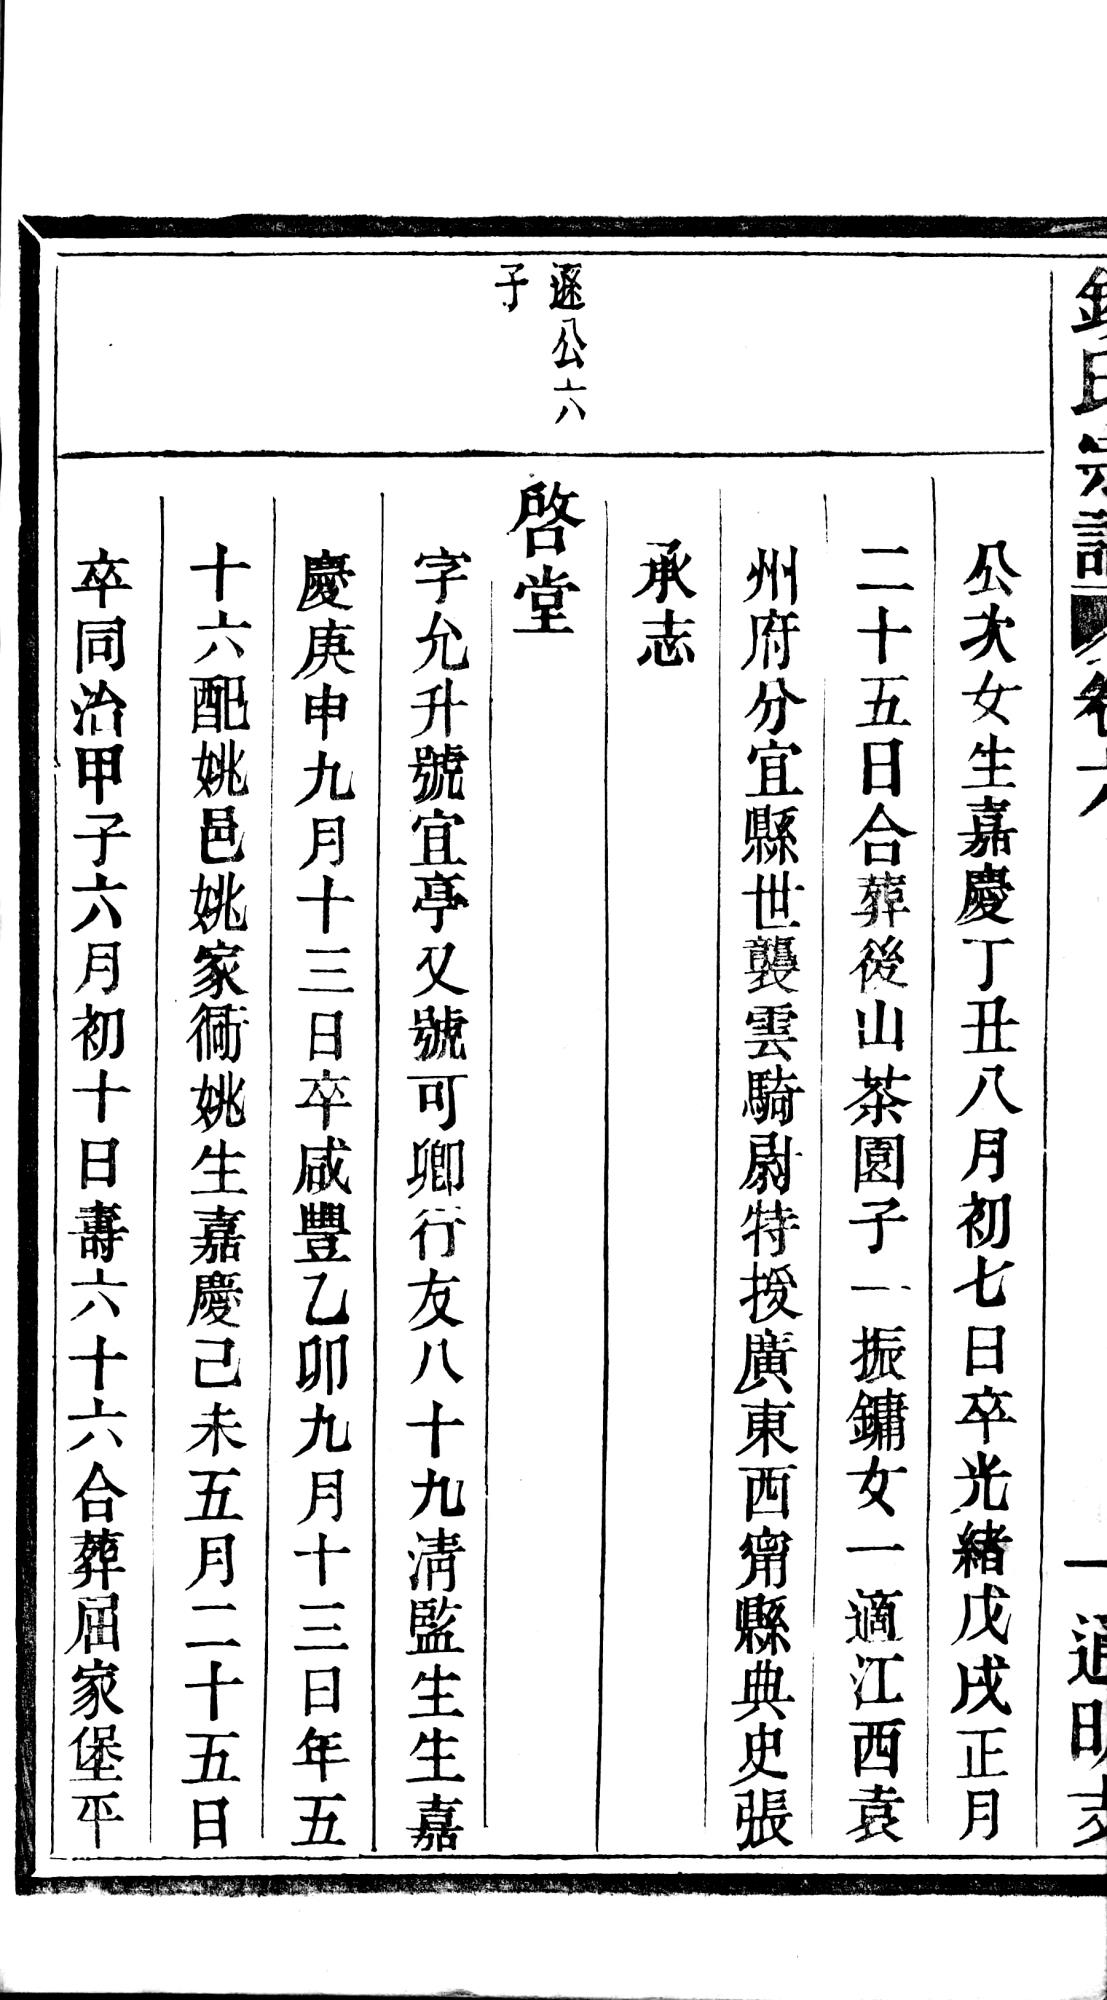 氏宗譜 卷六 一 通明支
公次女生嘉慶丁丑八月初七日卒光緒戊戌正月
二十五日合葬後山茶園子一振鏞女一適江西袁
州府分宜縣世襲雲騎尉特授廣東西甯縣典史張
承志
遜公六
子
啓堂
字允升號宜亭又號可卿行友八十九淸監生生嘉
慶庚申九月十三日卒咸豐乙卯九月十三日年五
十六配姚邑姚家衕姚生嘉慶己未五月二十五日
卒同治甲子六月初十日壽六十六合葬屈家堡平